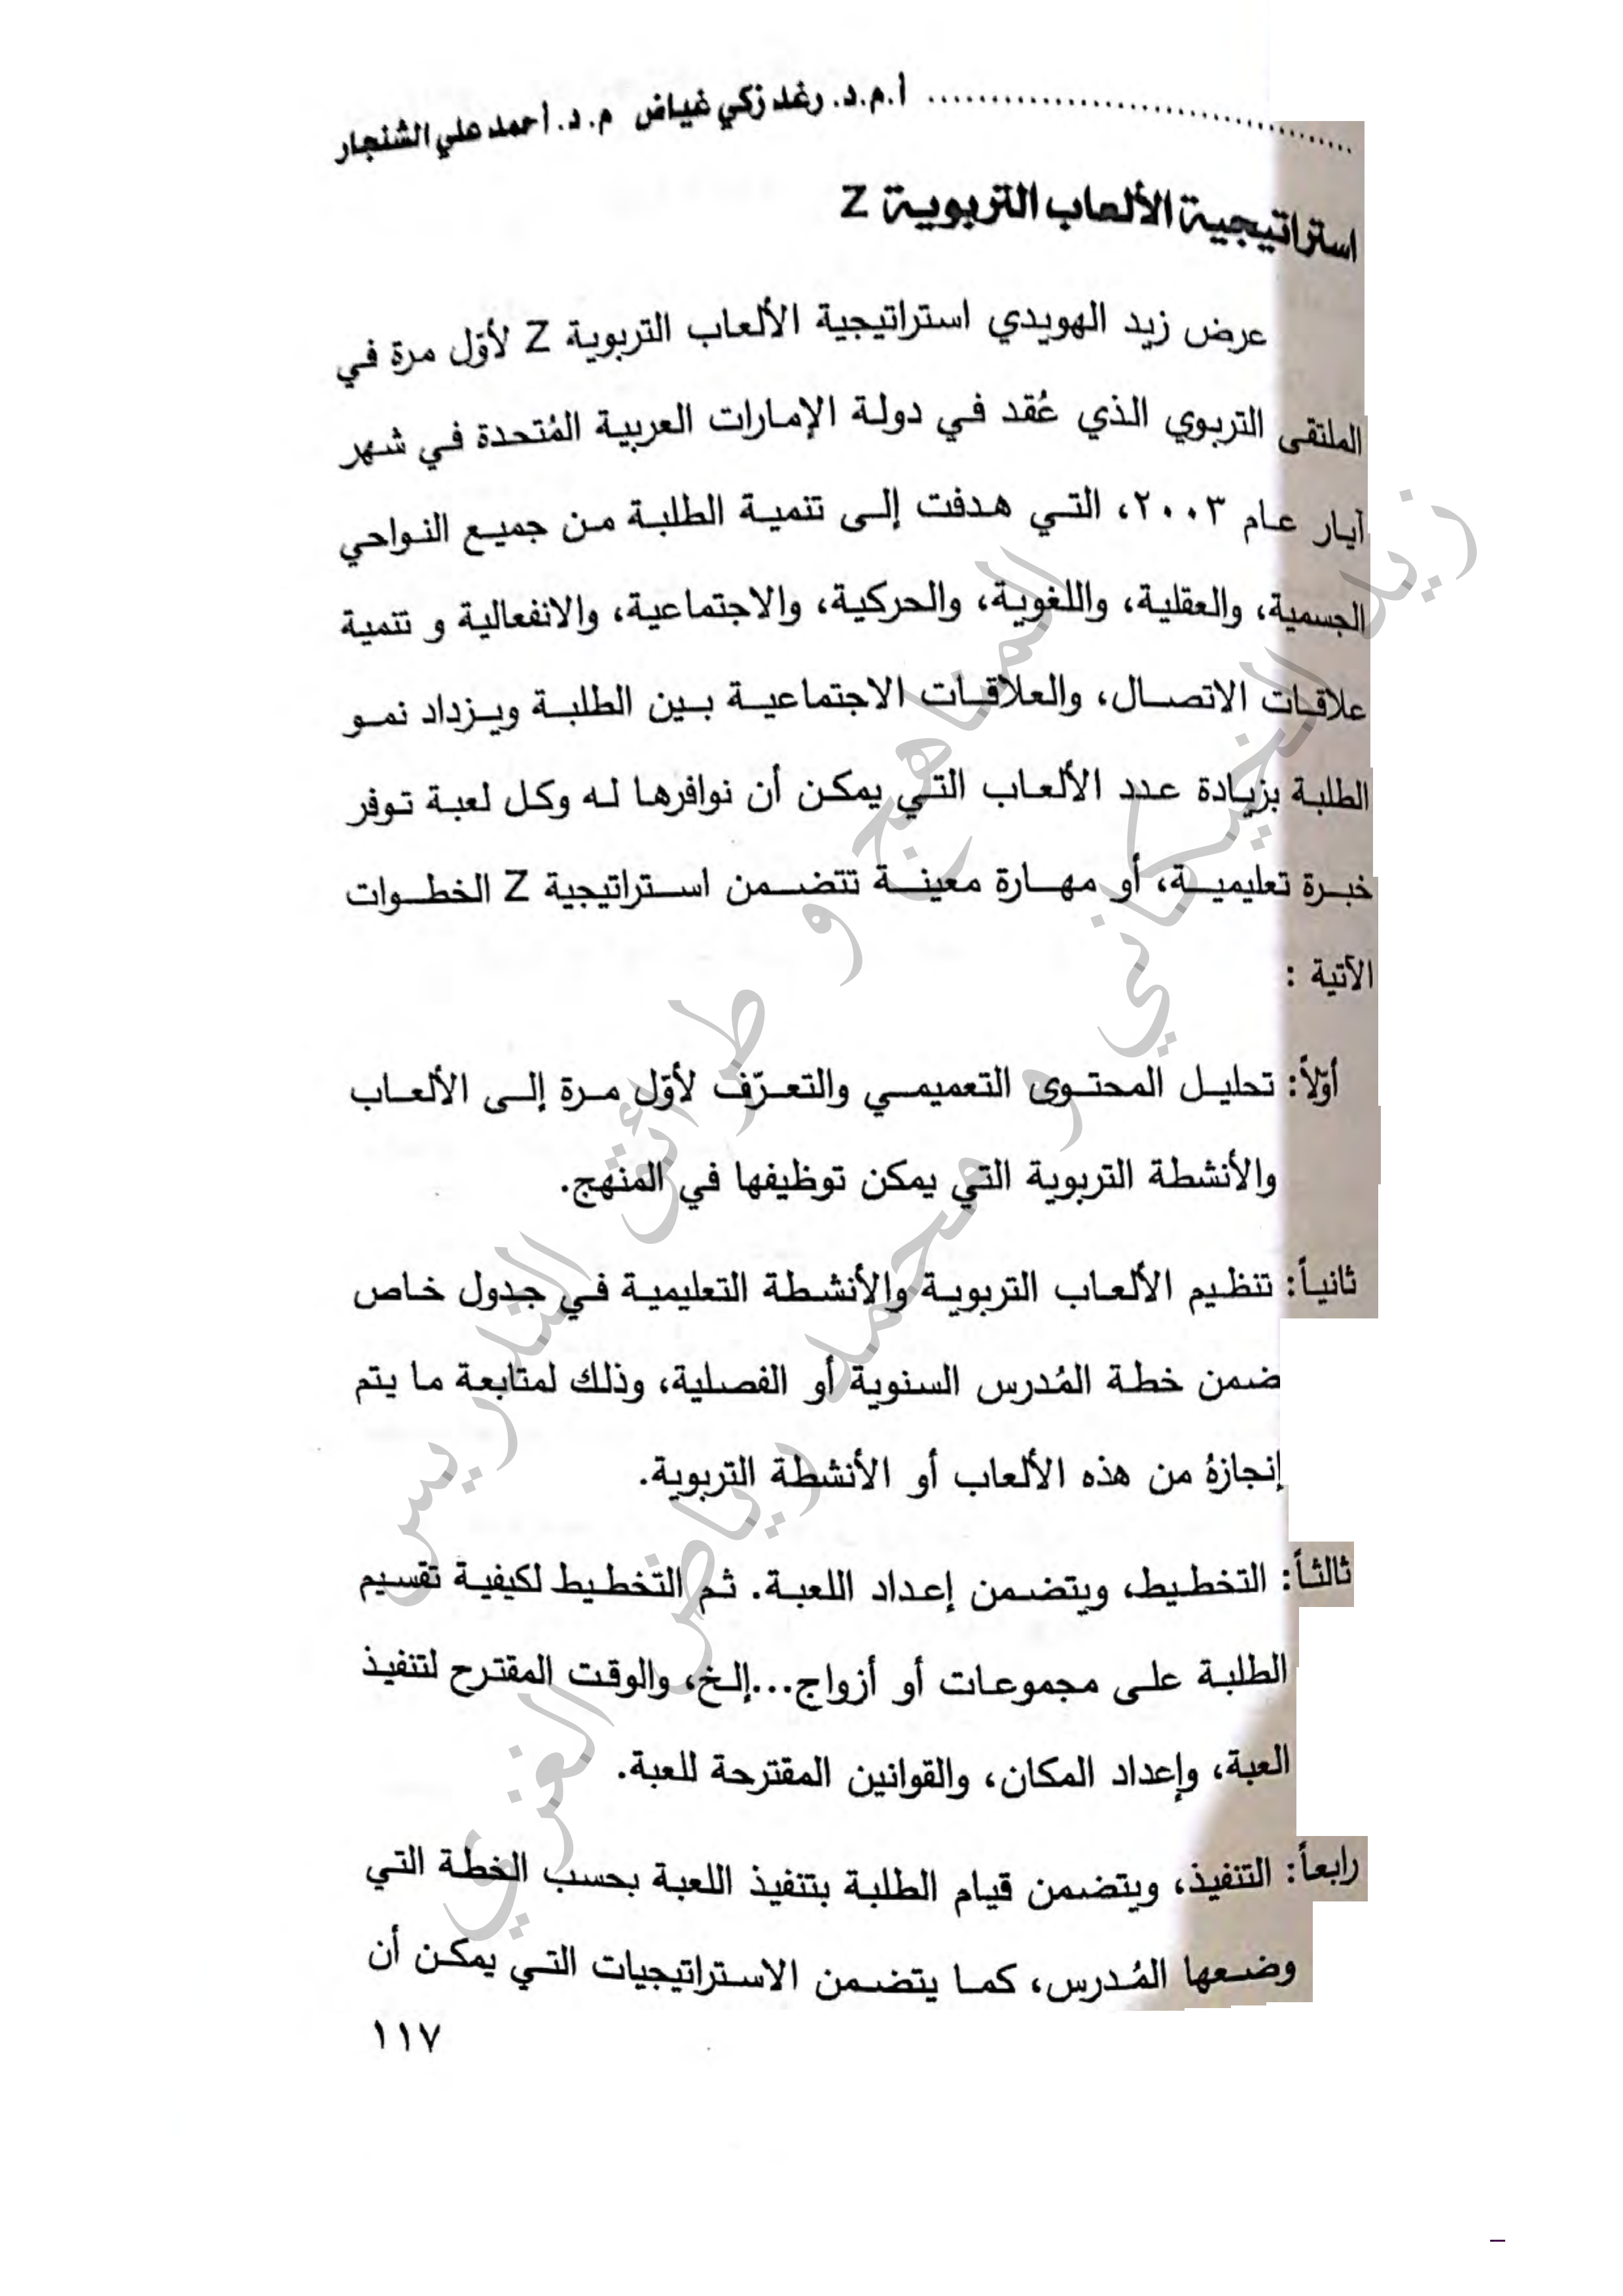 أ.م.د. رغد زكي غياض م.د. أحمد علي الشنجار
استراتيجية الألعاب التربوية Z
عرض زيد الهويدي استراتيجية الألعاب التربوية Z لأوّل مرة في
الملتقى التربوي الذي عُقد في دولة الإمارات العربية المُتحدة في شهر
آيار عام ٢٠٠٣، التي هدفت إلى تنمية الطلبة من جميع النواحي
الجسمية، والعقلية، واللغوية، والحركية، والاجتماعية، والانفعالية و تنمية
علاقات الاتصال، والعلاقات الاجتماعية بين الطلبة ويزداد نمو
الطلبة بزيادة عدد الألعاب التي يمكن أن نوافرها له وكل لعبة توفر
خبرة تعليمية، أو مهارة معينة تتضمن استراتيجية Z الخطوات
الآتية :
أوّلاً: تحليل المحتوى التعميمي والتعرّف لأوّل مرة إلى الألعاب
والأنشطة التربوية التي يمكن توظيفها في المنهج.
ثانياً: تنظيم الألعاب التربوية والأنشطة التعليمية في جدول خاص
ضمن خطة المُدرس السنوية أو الفصلية، وذلك لمتابعة ما يتم
إنجازهُ من هذه الألعاب أو الأنشطة التربوية.
ثالثاً: التخطيط، ويتضمن إعداد اللعبة. ثم التخطيط لكيفية تقسيم
الطلبة على مجموعات أو أزواج...إلخ، والوقت المقترح لتنفيذ
العبة، وإعداد المكان، والقوانين المقترحة للعبة.
رابعاً: التنفيذ، ويتضمن قيام الطلبة بتنفيذ اللعبة بحسب الخطة التي
وضعها المُدرس، كما يتضمن الاستراتيجيات التي يمكن أن
١١٧
المناهج و طرائق التدريس
زيد الخيكاني و محمد رياض الغزي